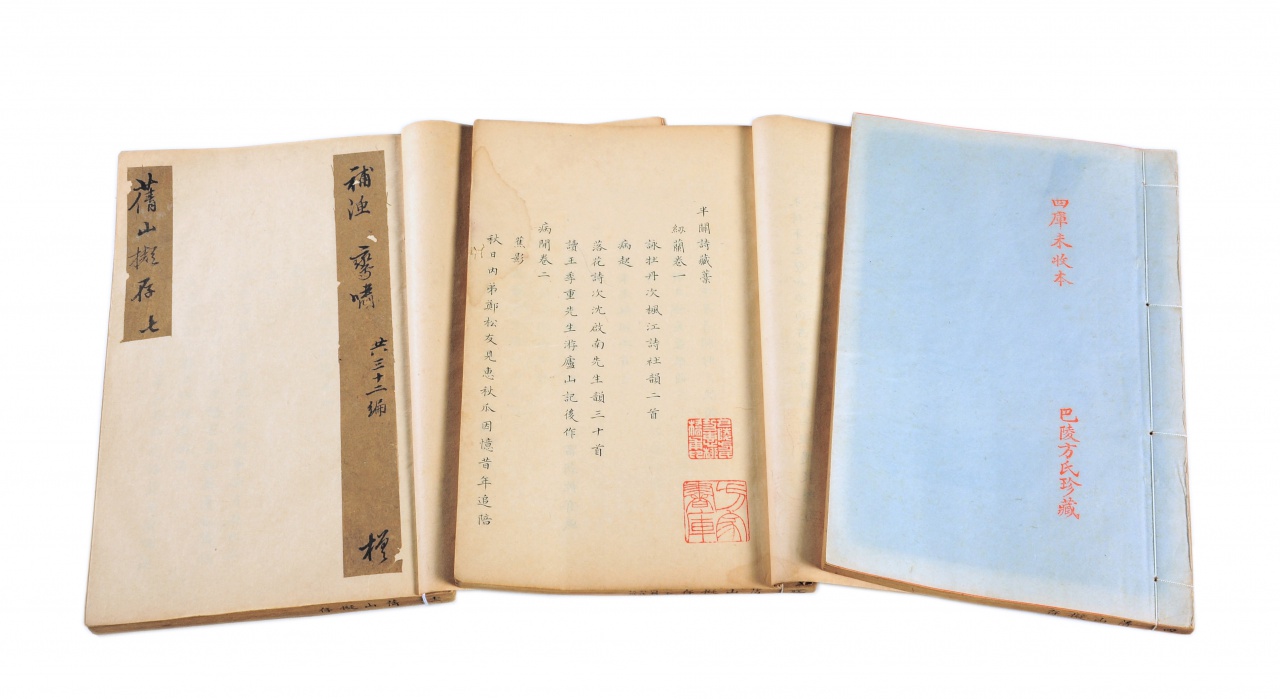 四庫未收本
巴陵方氏珍藏
半閒詩藏藁
紉蘭卷一
詠牡丹次楓江詩社韻二首
病起
落花詩次沈啟南先生韻三十首
讀王季重先生游廬山記後作
病閒卷二
蕉影
秋日內弟鄭松友見惠秋瓜因憶昔年追陪
方家書庫
補
嘯
共三十二編
蒨山擬存七